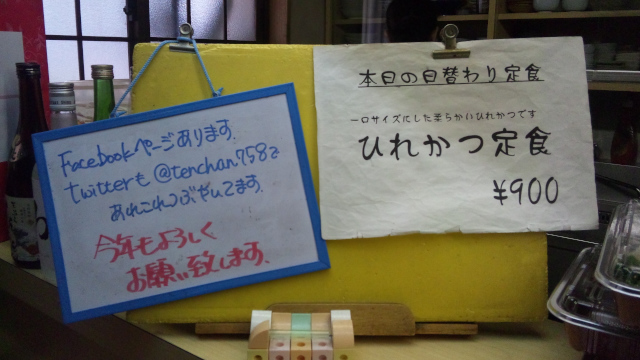 Facebookページあります.
twitterも@tenchan758で
あれこれつぶやいてます.
今年もよろしく
お願い致します.
本日の日替わり定食
一口サイズにした柔らかいひれかつです
ひれかつ定食
¥900